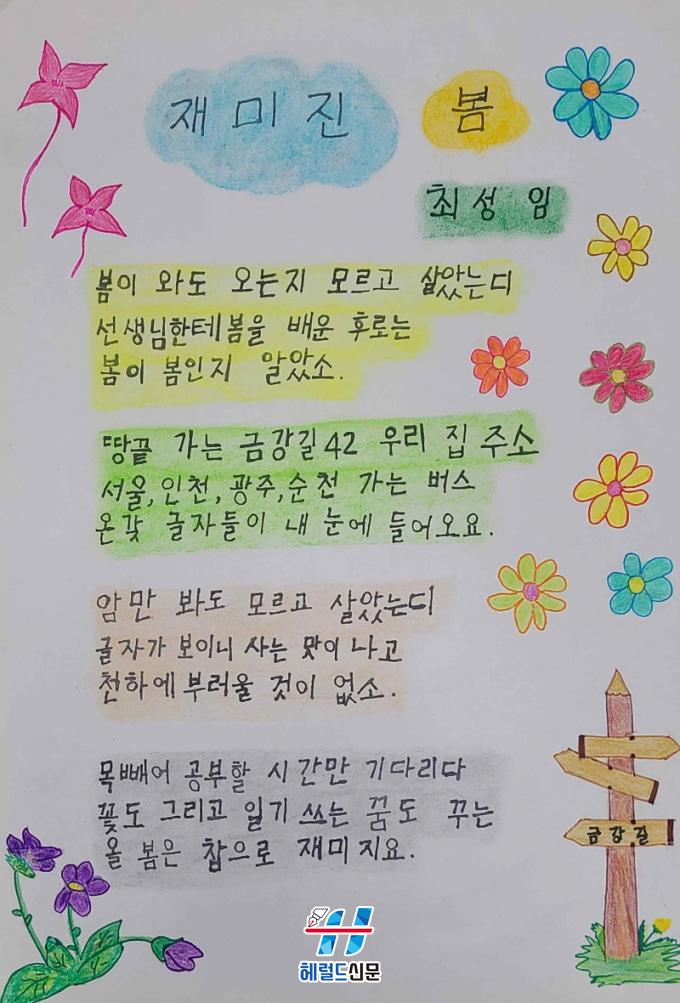 재미진 봄
최성임
봄이 와도 오는지 모르고 살았는디
선생님한테 봄을 배운 후로는
봄이 봄인지 알았소.
땅끝 가는 금강길42 우리 집 주소
서울,인천,광주,순천 가는 버스
온갖 글자들이 내 눈에 들어오요.
암만 봐도 모르고 살았는디
글자가 보이니 사는 맛이 나고
천하에 부러울 것이 없소.
목빼어 공부할 시간만 기다리다
꽃도 그리고 일기 쓰는 꿈도 꾸는
올 봄은 참으로 재미지요.
금강길
헤럴드신문